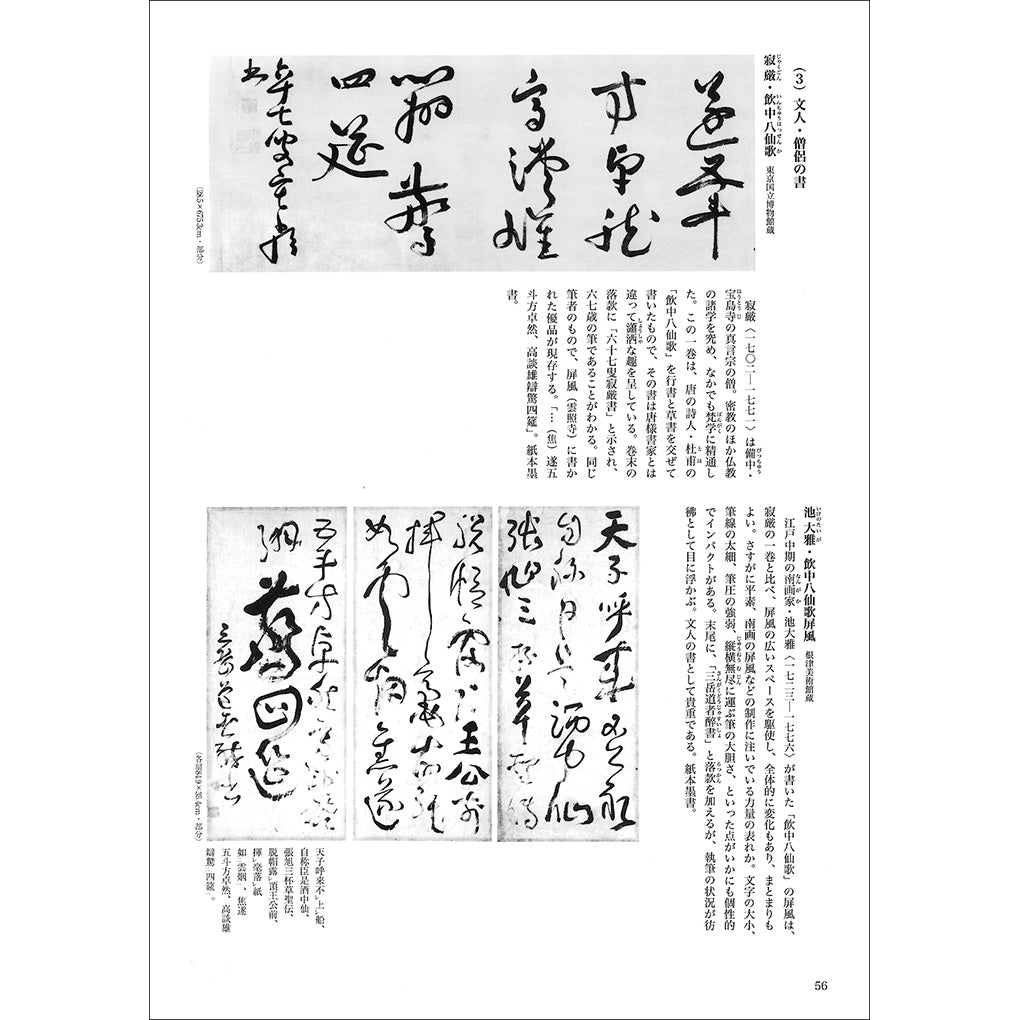 (3) 文人・僧侶の書
寂厳・飲中八仙歌 東京国立博物館蔵
遂五斗
方卓然
高談雄
辯驚
四筵
六十七叟寂嚴
書
(28.5×675.3cm・部分)
寂厳〈一七〇二―一七七一〉は備中・
宝島寺の真言宗の僧。密教のほか仏教
の諸学を究め、なかでも梵学に精通し
た。この一巻は、唐の詩人・杜甫の
「飲中八仙歌」を行書と草書を交ぜて
書いたもので、その書は唐様書家とは
違って瀟洒な趣を呈している。巻末の
落款に「六十七叟寂厳書」と示され、
六七歳の筆であることがわかる。同じ
筆者のもので、屏風(雲照寺)に書か
れた優品が現存する。「…(焦)遂五
斗方卓然、高談雄辯驚四筵」。紙本墨
書。
池大雅・飲中八仙歌屏風 根津美術館蔵
江戸中期の南画家・池大雅〈一七二三―一七七六〉が書いた「飲中八仙歌」の屏風は、
寂厳の一巻と比べ、屏風の広いスペースを駆使し、全体的に変化もあり、まとまりも
よい。さすがに平素、南画の屏風などの制作に注いでいる力量の表れか。文字の大小、
筆線の太細、筆圧の強弱、縦横無尽に運ぶ筆の大胆さ、といった点がいかにも個性的
でインパクトがある。末尾に、「三岳道者酔書」と落款を加えるが、執筆の状況が彷
彿として目に浮かぶ。文人の書として貴重である。紙本墨書。
天子呼来不上船
自称臣是酒中仙
張旭三杯草聖伝
脱帽露頂王公前
揮毫落紙
如雲烟焦遂
五斗方卓然高談雄
辯驚四筵
三岳道者酔書
(各扇84.9×35.4cm・部分)
天子呼来不レ上レ船、
自称臣是酒中仙、
張旭三杯草聖伝、
脱帽露レ頂王公前、
揮レ毫落レ紙
如二雲烟一、焦遂
五斗方卓然、高談雄
辯驚二四筵一。
56